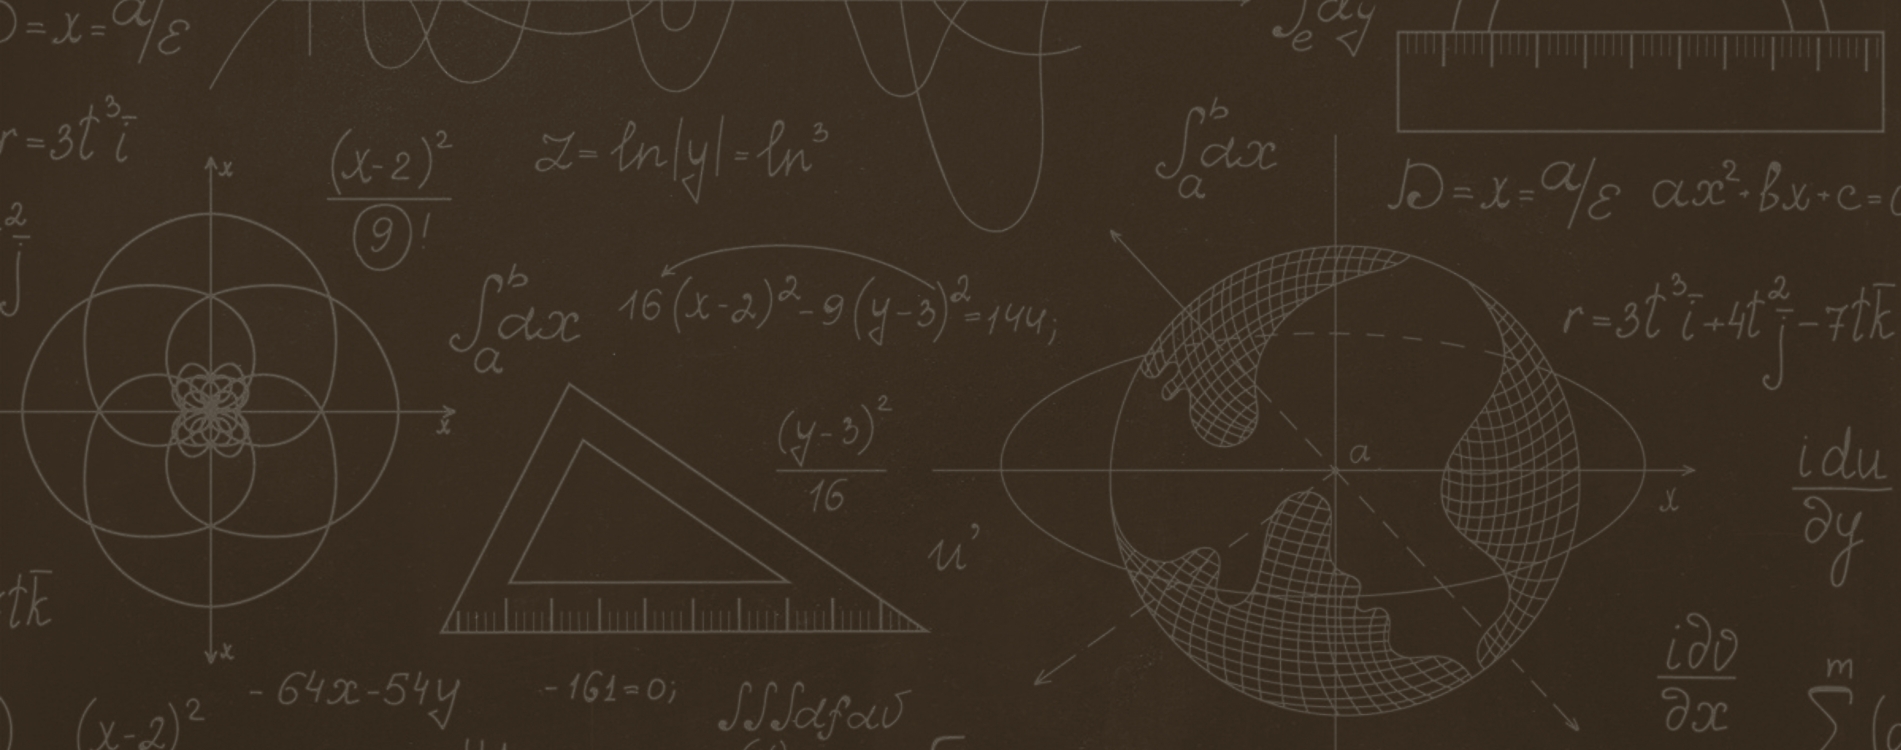 D=x=a/ε
∫e dy
r=3t³i̅
(x-2)²
9!
z=ln|y|=ln³
∫ₐᵇdx
D=x=a/ε ax²+bx+c=
x
∫ₐᵇdx
16(x-2)²-9(y-3)²=144;
r=3t³i̅+4t²j̅-7tk̅
x
(y-3)²
16
a
x
idu
∂y
u’
tk̅
x
i∂υ
∂x
-64x-54y -161=0;
∫∫∫dfdv
(x-2)²
m
∑(